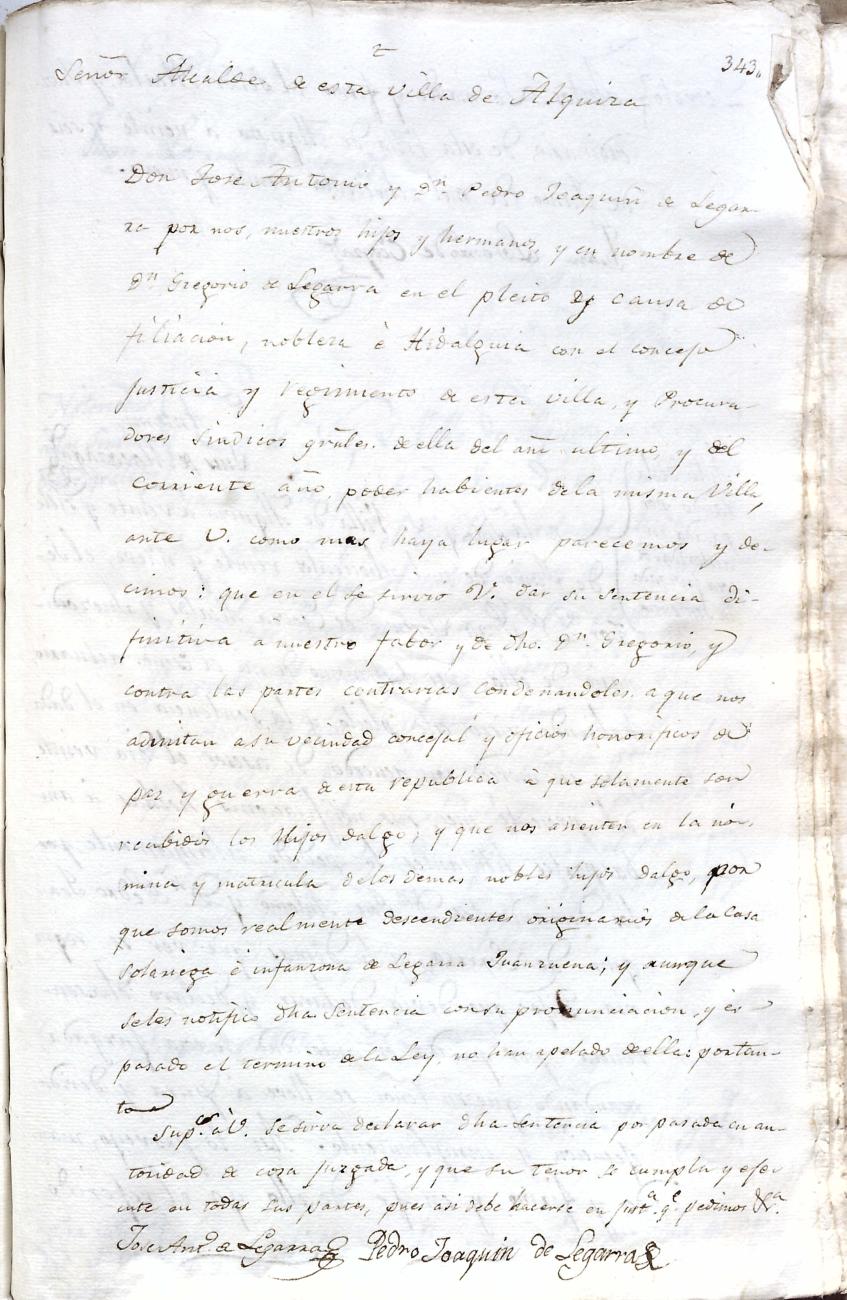 343,,
Señor Alcalde de esta villa de Alquiza
Don Jose Antonio, y Dn. Pedro Joaquin de Legar-
ra por nos, nuestros hijos y hermanos, y en nombre de
Dn. Gregorio de Legarra en el pleito y causa de
filiacion, nobleza è Hidalguia con el concejo
justicia y regimiento de esta villa, y Procura-
dores Sindicos grãles. de ella del año ultimo, y del
corriente año, poder habientes de la misma Villa,
ante V. como mas haya lugar parecemos y de-
cimos: que en el se sirvio V. dar su sentencia di-
finitiva a nuestro fabor y de dho. Dn. Gregorio, y
contra las partes contrarias condenandoles a que nos
admitan a su vecindad concejal y oficios honorificos de
paz y guerra de esta republica à que solamente son
recibidos los Hijos dalgo; y que nos asienten en la nó-
mina y matricula de los demas nobles hijos dalgo, por
que somos realmente descendientes originarios de la Casa
solariega è infanzona de Legarra Juanzuena; y aunque
se les notifico dha. Sentencia con su pronunciacion, y es
pasado el termino de la Ley, no han apelado de ella: portan-
to
Supcos. à V. se sirva declarar dha. sentencia por pasada en au-
toridad de cosa juzgada, y que su tenor se cumpla y efe-
cute en todas sus partes, pues asi debe hacerse en justa. qe. pedimos &a.
Jose Anto. de Legarra Pedro Joaquin de Legarra